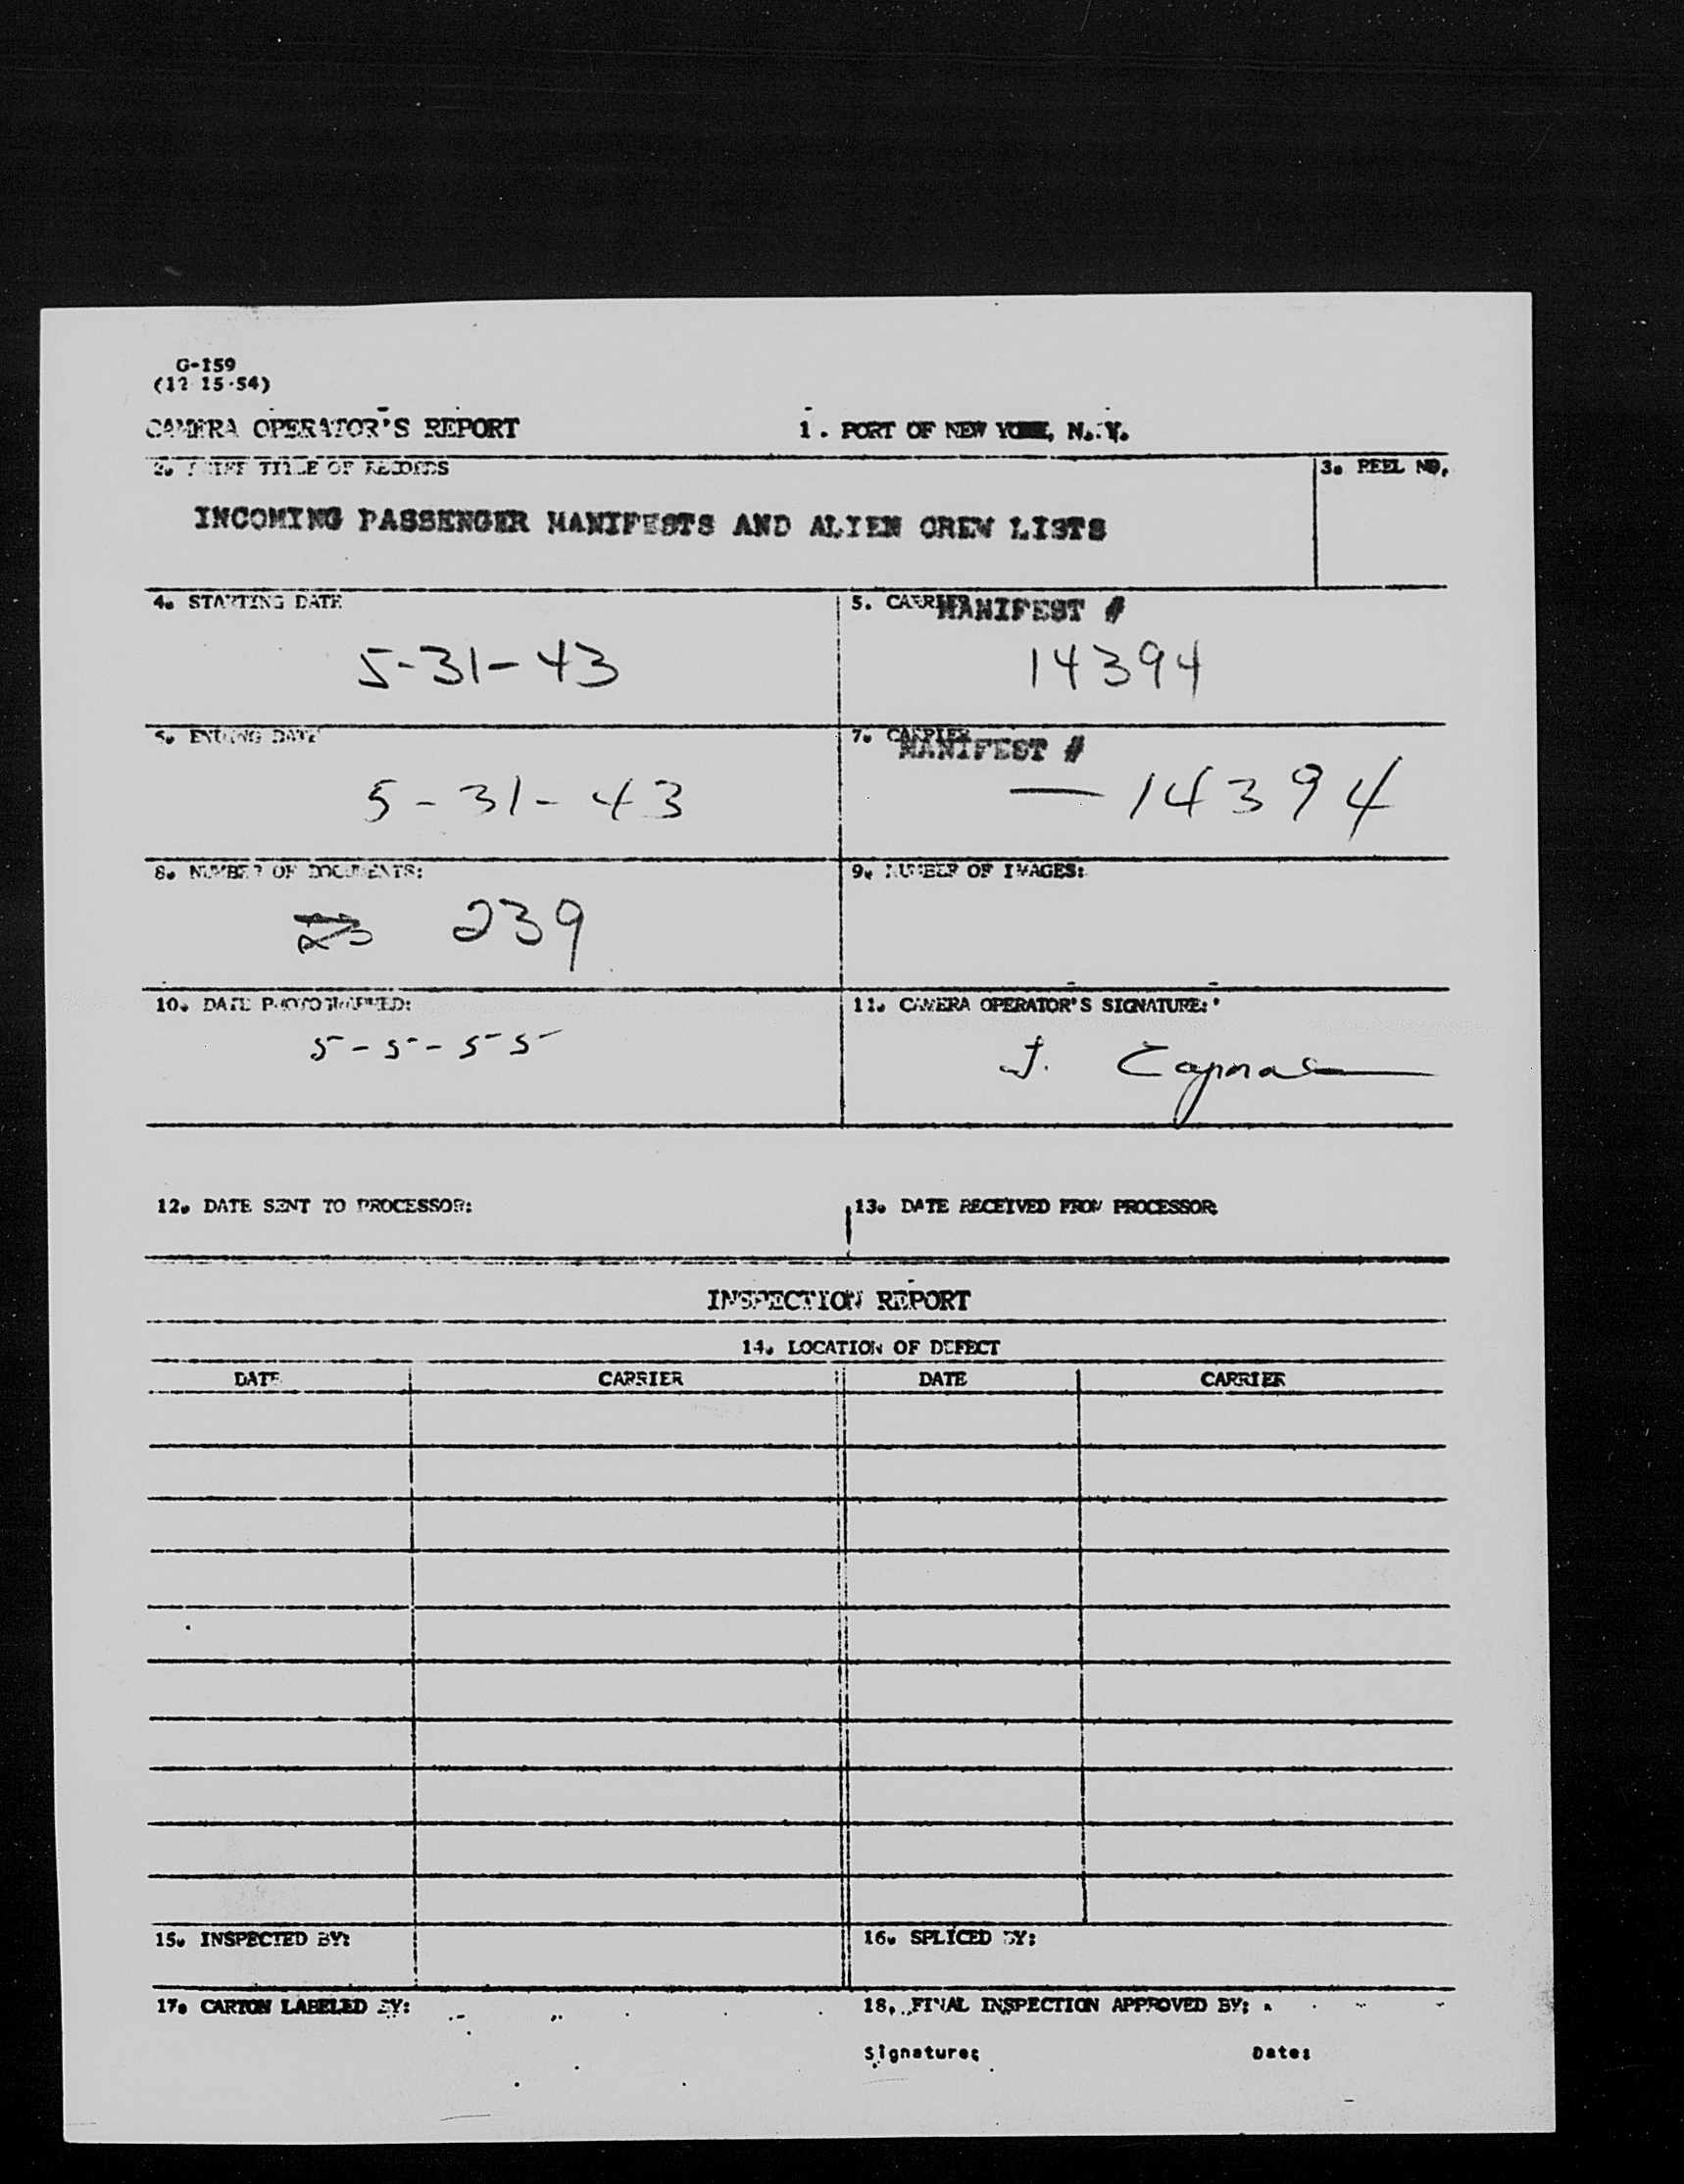 G-159
(12 15-54)
CAMERA OPERATOR'S REPORT 1. PORT OF NEW YORK, N. Y.
2. BRIEF TITLE OF RECORDS 3. REEL NO.
INCOMING PASSENGER MANIFESTS AND ALIEN CREW LISTS
4. STARTING DATE 5. CARRIER MANIFEST #
5-31-43 14394
6. ENDING DATE 7. CARRIER MANIFEST #
5-31-43 — 14394
8. NUMBER OF DOCUMENTS: 9. NUMBER OF IMAGES:
239
10. DATE PHOTOGRAPHED: 11. CAMERA OPERATOR'S SIGNATURE:
5-5-55 J.
12. DATE SENT TO PROCESSOR: 13. DATE RECEIVED FROM PROCESSOR:
INSPECTION REPORT
14. LOCATION OF DEFECT
DATE CARRIER DATE CARRIER
15. INSPECTED BY: 16. SPLICED BY:
17. CARTON LABELED BY: 18. FINAL INSPECTION APPROVED BY:
Signature: Date: